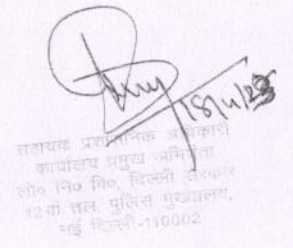 18/11/25
सहायक प्रशासनिक अधिकारी
कार्यालय प्रमुख अभियंता
लो० नि० वि०, दिल्ली सरकार
12वां तल, पुलिस मुख्यालय,
नई दिल्ली-110002